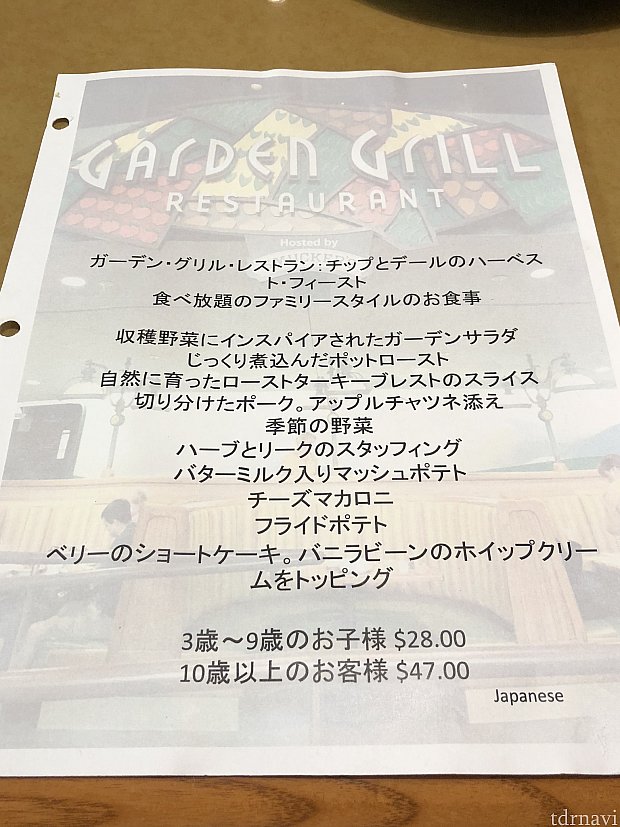 GARDEN GRILL
RESTAURANT
Hosted by
ガーデン・グリル・レストラン:チップとデールのハーベス
ト・フィースト
食べ放題のファミリースタイルのお食事
収穫野菜にインスパイアされたガーデンサラダ
じっくり煮込んだポットロースト
自然に育ったローストターキーブレストのスライス
切り分けたポーク。アップルチャツネ添え
季節の野菜
ハーブとリークのスタッフィング
バターミルク入りマッシュポテト
チーズマカロニ
フライドポテト
ベリーのショートケーキ。バニラビーンのホイップクリー
ムをトッピング
3歳～9歳のお子様 $28.00
10歳以上のお客様 $47.00
Japanese
tdrnavi